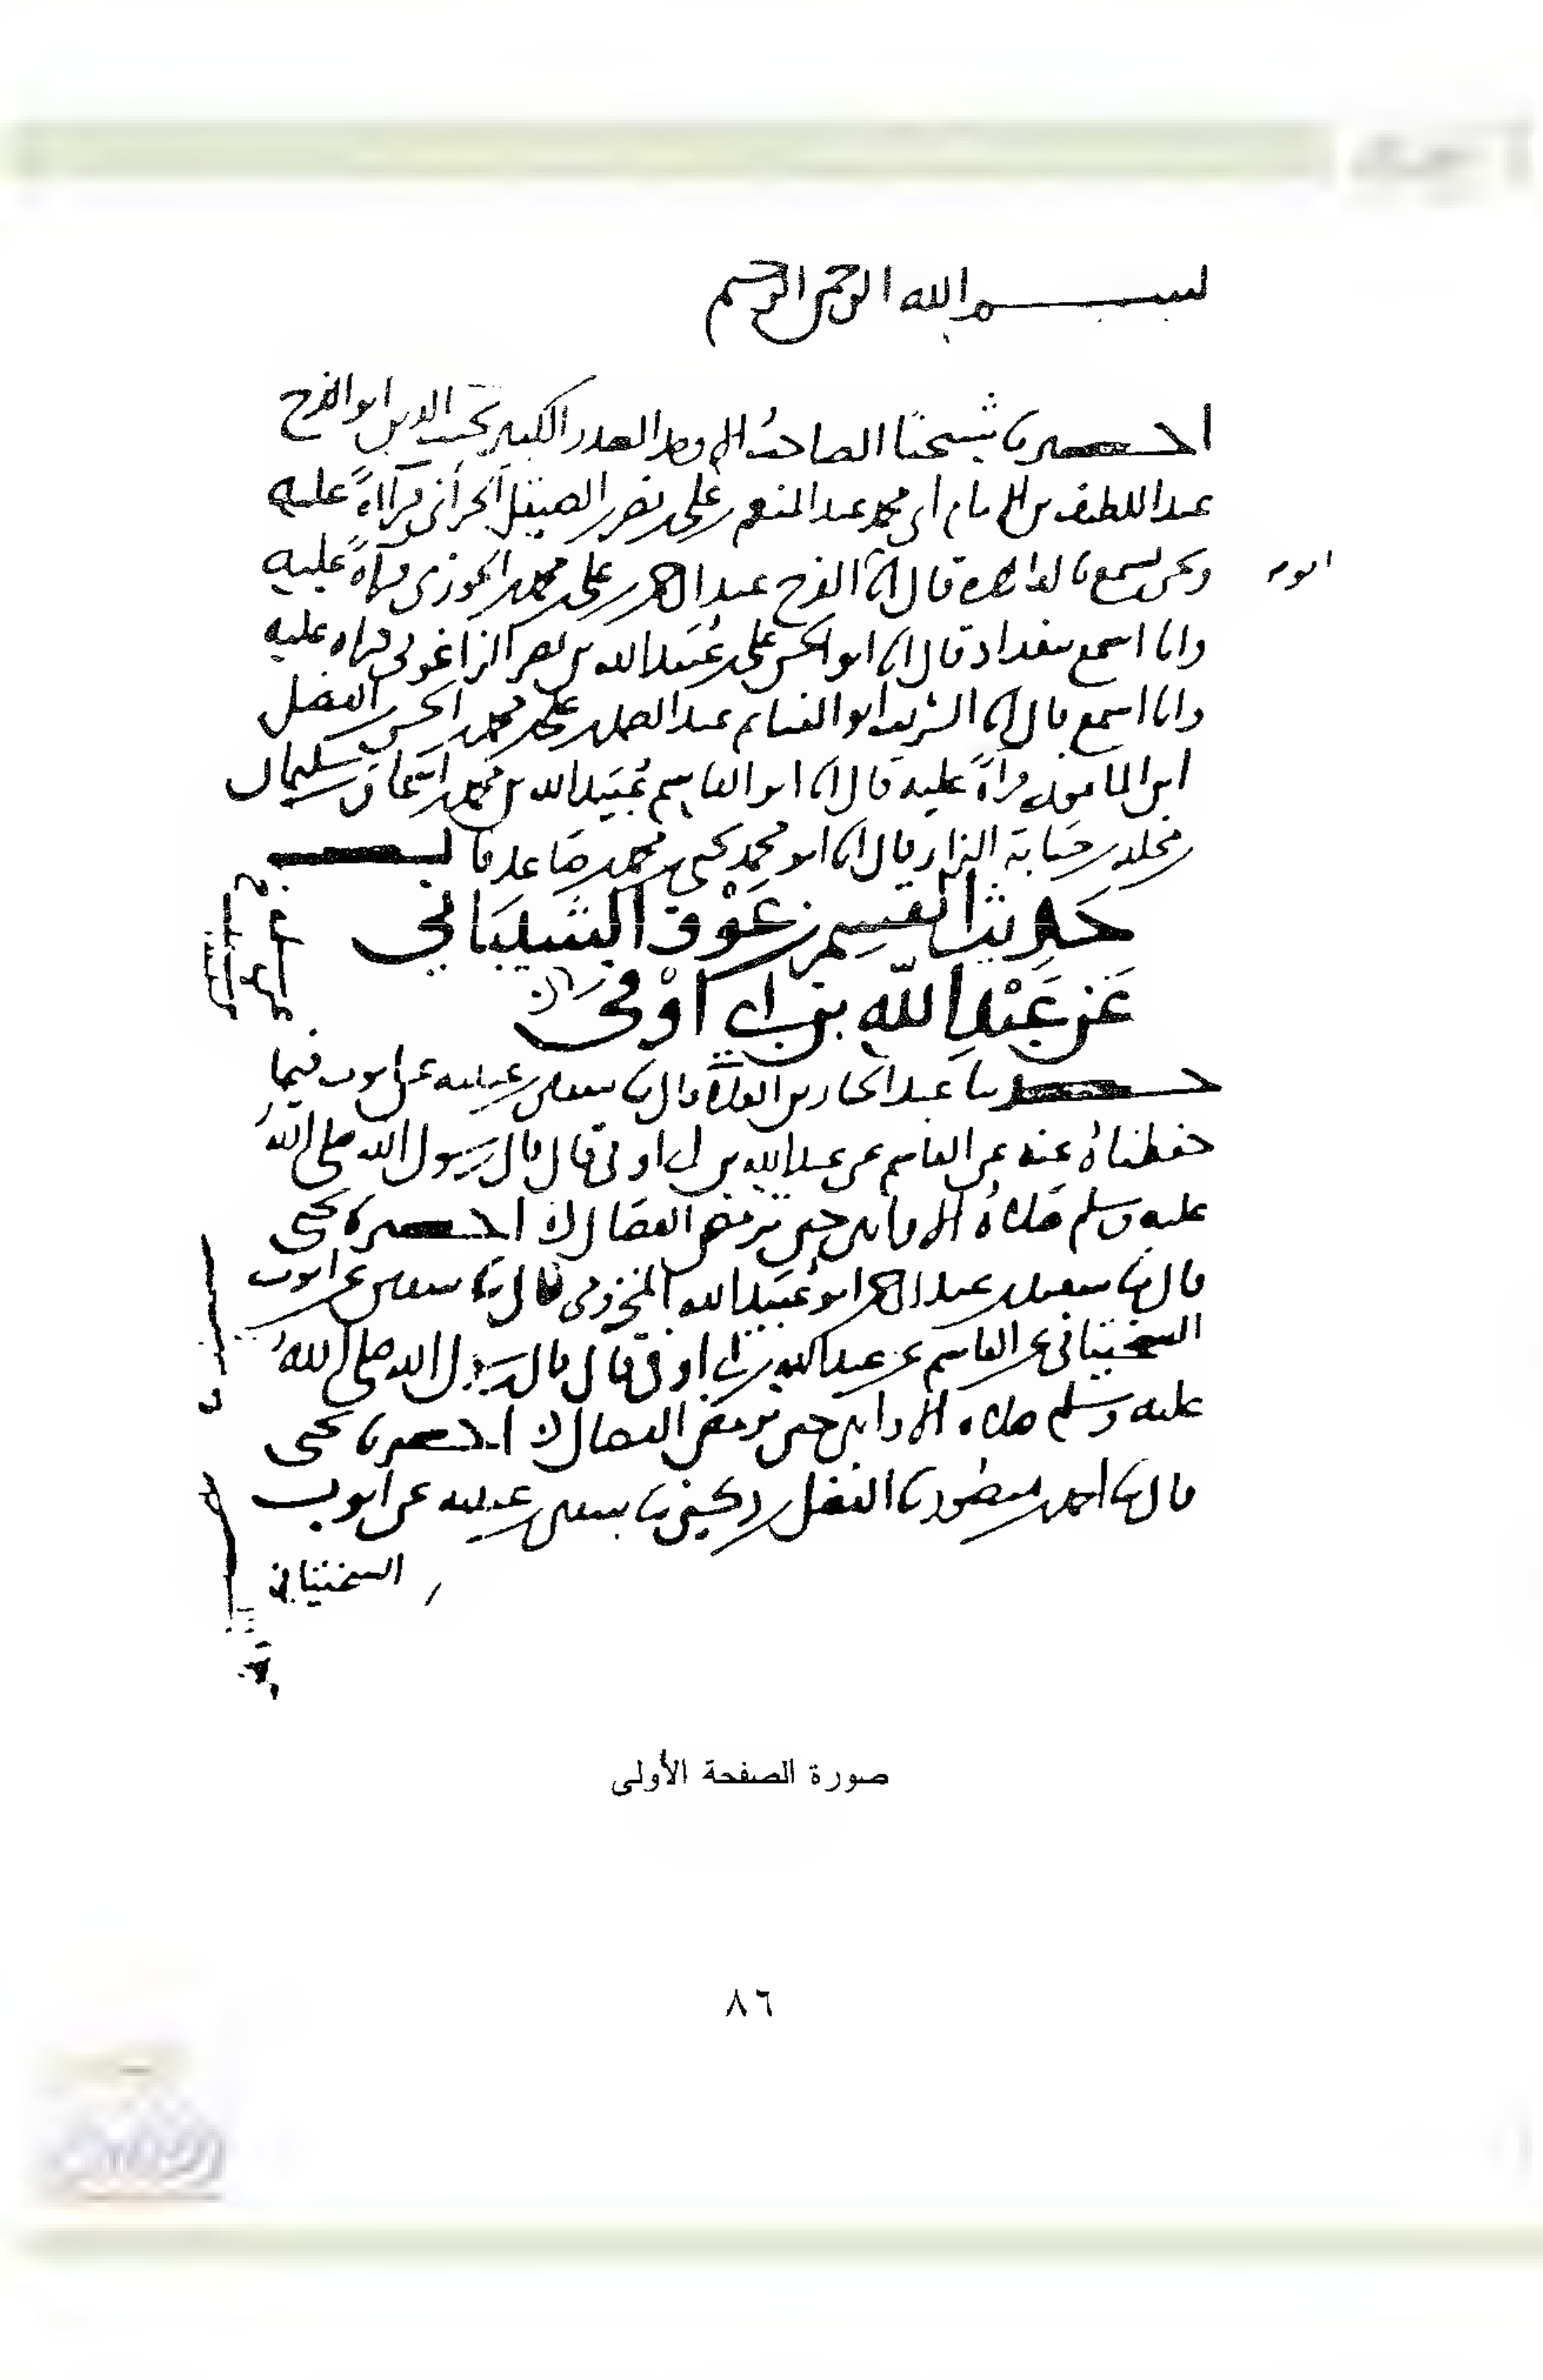 بسم الله الرحمن الرحيم
اخبرنا شيخنا الصاحب الصدر الكبير نجيب الدين ابو الفرج
عبد اللطيف بن الامام ابي محمد عبد المنعم بن علي بن نصر بن الصيقل الحراني قراءةً عليه
ونحن نسمع بالقاهرة قال انا الفرج عبد الرحمن بن علي بن محمد بن الجوزي قراءةً عليه
ابو
وانا اسمع ببغداد قال انا ابو الحسن علي بن عُبَيد الله بن نصر الزاغوني قراءه عليه
وانا اسمع قال انا الشريف ابو الغنايم عبد الصمد بن علي بن محمد بن الحسن بن الفضل
ابن المامون قراءةً عليه قال انا ابو القاسم عُبَيد الله بن محمد بن اسحاق بن سليمان
بن مخلد بن حبابة البزار قال انا ابو محمد يحيى بن محمد بن صاعد قال
حَدِيث القسِم بن عَوْف الشَيبَاني
عَن عَبْد اللّه بن ابي اَوْفى
حدثنا عبد الجبار بن العلاء قال نا سفين بن عيينه عن ايوب فيما
حفظناهُ عنه عن القاسم عن عبد الله بن ابي اوفى قال قال رسول الله صلى اللهُ
عليه وسلم صلاةُ الاوابين حين ترمض الفصال اخبرنا يحيى
قال نا سعيد بن عبد الرحمن ابو عُبَيد الله المخزومي قال نا سفين عن ايوب
السختياني عن القاسم عن عبد الله بن ابي اوفى قال قال رسول الله صلى اللهُ
عليه وسلم صلاه الاوابين حين ترمض الفصال اخبرنا يحيى
قال نا احمد بن منصور نا الفضل بن دكين نا سفين بن عيينه عن ايوب
السختياني
صورة الصفحة الأولى
٨٦